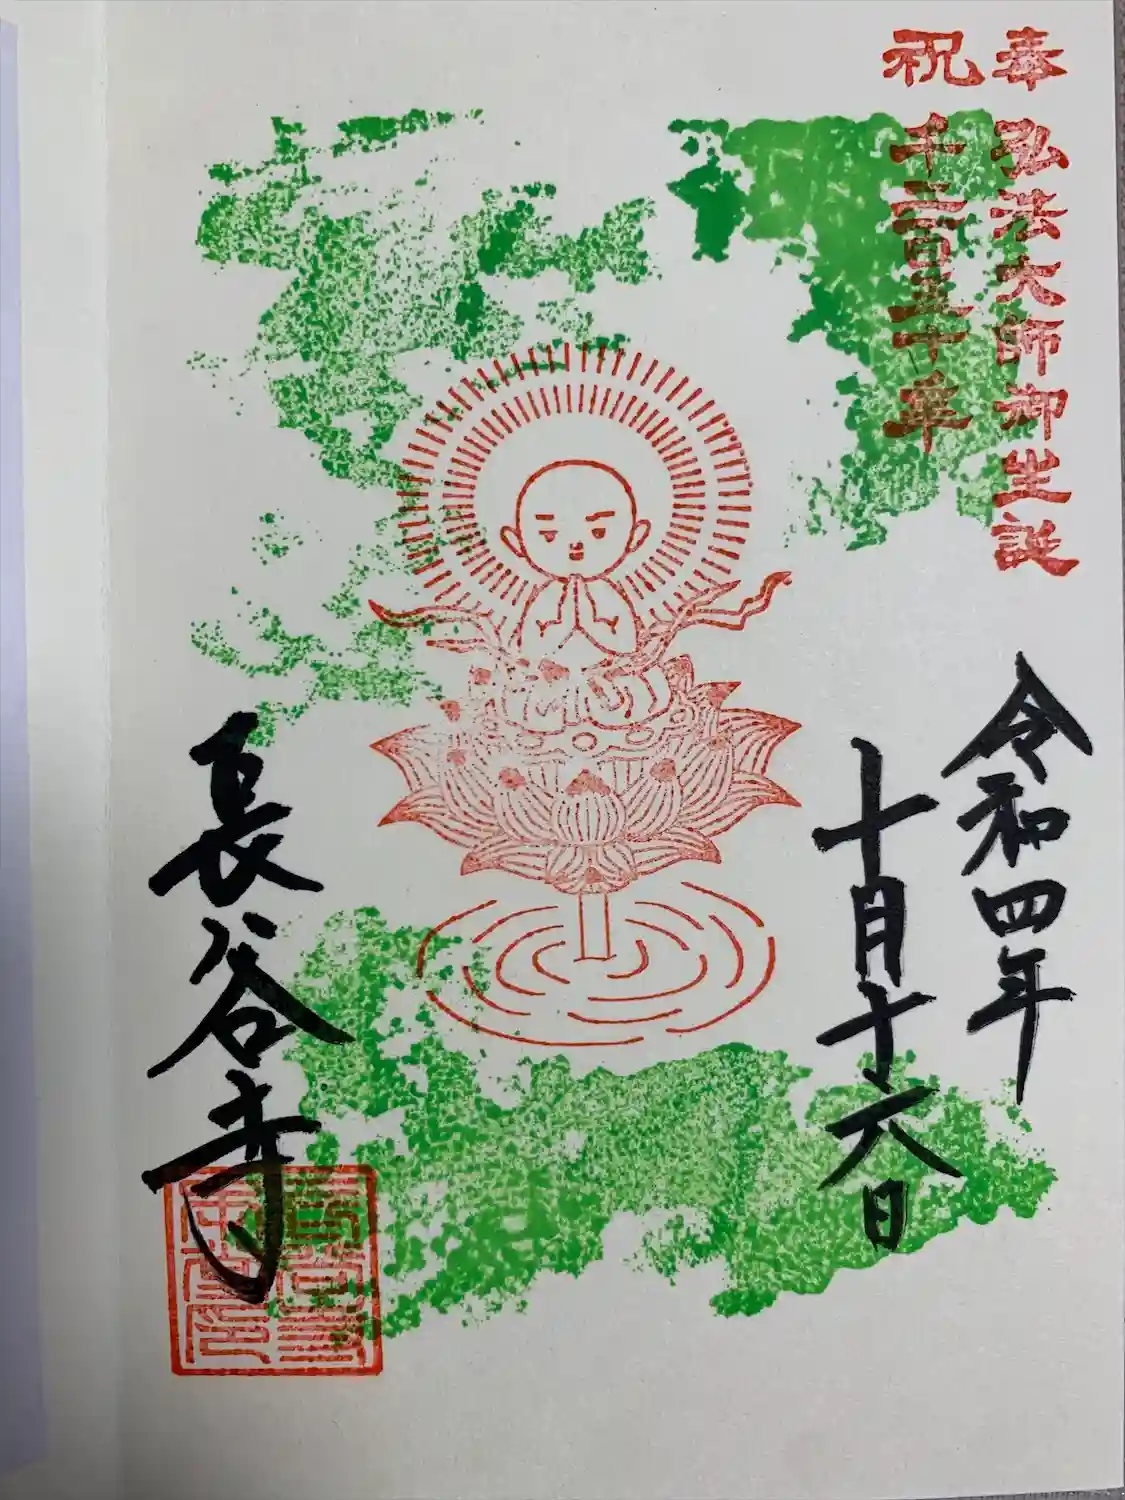 奉 弘法大師御生誕
祝 千二百五十年
令和四年
十月十六日
長谷寺